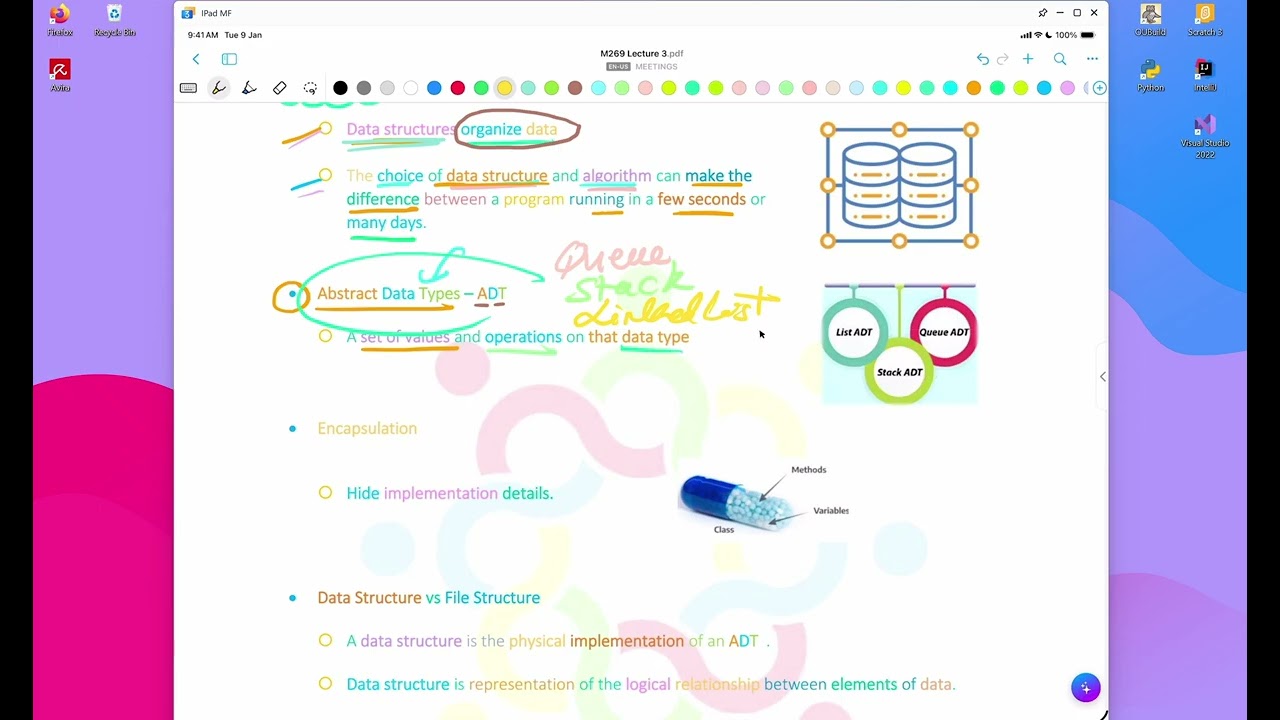 Firefox
Recycle Bin
Avira
OUBuild
Scratch 3
Python
IntelliJ
Visual Studio
2022
IPad MF
9:41 AM Tue 9 Jan
100%
M269 Lecture 3.pdf
EN-US MEETINGS
Data structures organize data
The choice of data structure and algorithm can make the
difference between a program running in a few seconds or
many days.
Queue
Stack
Linked List
Abstract Data Types – ADT
A set of values and operations on that data type
List ADT
Queue ADT
Stack ADT
Encapsulation
Hide implementation details.
Methods
Variables
Class
Data Structure vs File Structure
A data structure is the physical implementation of an ADT .
Data structure is representation of the logical relationship between elements of data.